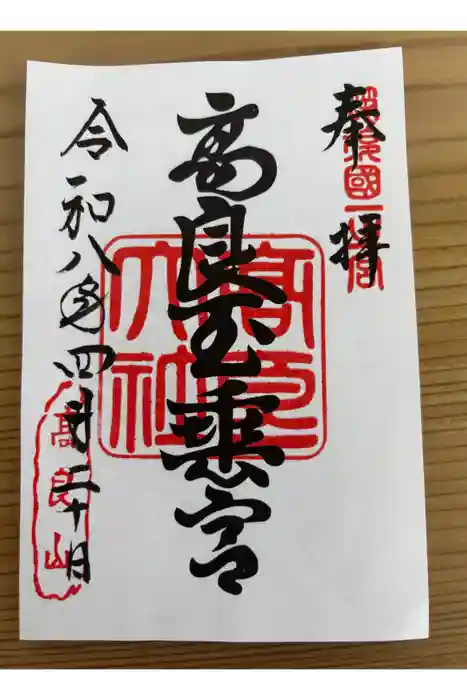 奉拝
筑後國一之宮
高良玉垂宮
高良
大社
令和八年四月二十日
高良山